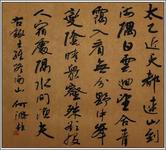 太乙近天都連山到
海隅白雲迴望合青
靄入看無分野中峯
變陰晴眾壑殊欲投
人宿處隔水問夫
右錄王維終南山 何